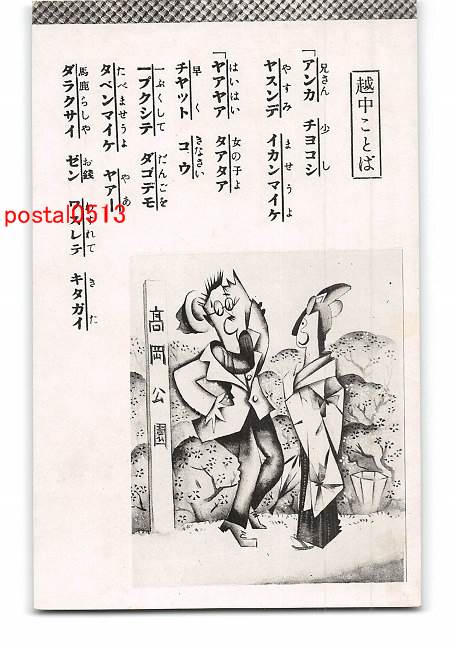 越中ことば
兄さん 少し
「アンカ チヨコシ
やすみ ませうよ
ヤスンデ イカンマイケ
はいはい 女の子よ
「ヤアヤア タアタア
早く きなさい
チヤット コウ
一ぷくして だんごを
一プクシテ ダゴデモ
たべませうよ やあ
タベンマイケ ヤアー
馬鹿らしや お錢 れて きた
ダラクサイ ゼン ワスレテ キタガイ
postal0513
高岡公園